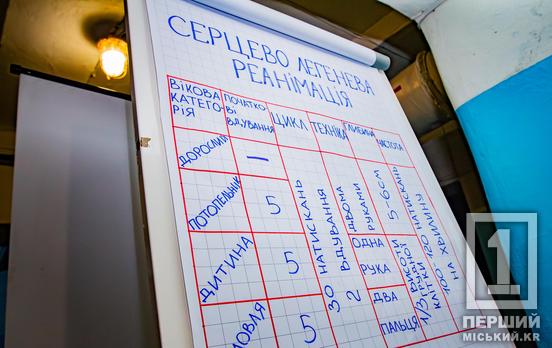 СЕРЦЕВО ЛЕГЕНЕВА
РЕАНІМАЦІЯ
ВІКОВА
КАТЕГО-
РІЯ
ПОЧАТКО-
ВІ
ВДУВАННЯ
ЦИКЛ
ТЕХНІКА
ГЛИБИНА
ЧАСТОТА
ДОРОСЛИЙ
—
ПОТОПЕЛЬНИК
5
ДИТИНА
5
5
30 НАТИСКАНЬ
2 ВДУВАННЯ
ДВОМА
РУКАМИ
ОДНА
РУКА
ДВА
ПАЛЬЦЯ
5-6СМ
1/3
100-120 НАТИСКАНЬ
НА ХВИЛИНУ
1
ПЕРШИЙ
МІСЬКИЙ.KR